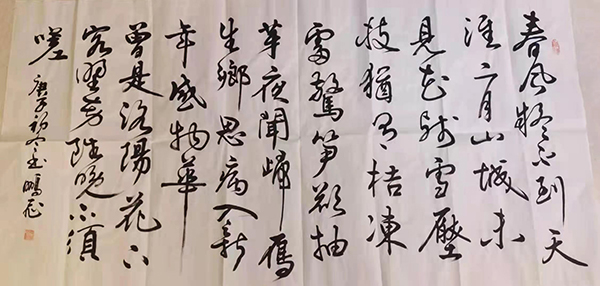 春風疑不到天
涯二月山城未
見花殘雪壓
枝猶有桔凍
雷驚笋欲抽
芽夜聞歸雁
生鄉思病入新
年感物華
曾是洛陽花下
客野芳雖晚不須
嗟
庚子初冬書鵬飛